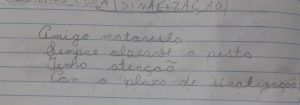 COM A SINALIZAÇÃO
Amigo motorista
Sempre observe a pista
Tenha atenção
Com a placa de sicalização